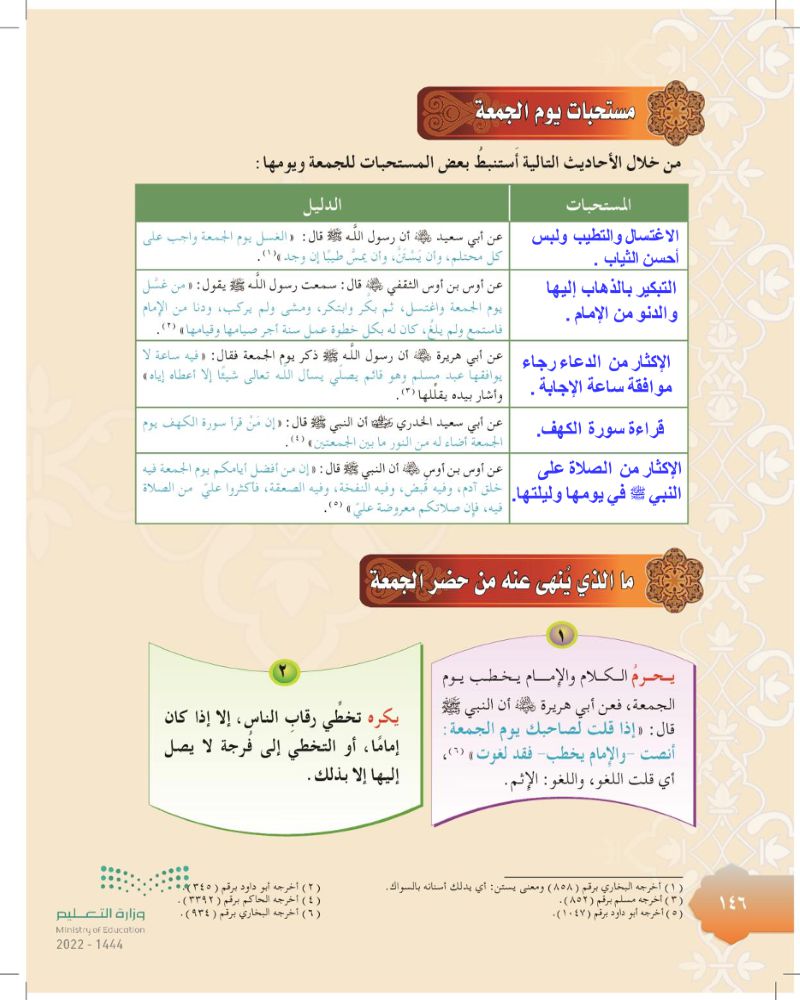 مستحبات يوم الجمعة
من خلال الأحاديث التالية أَستنبطُ بعض المستحبات للجمعة ويومها:
المستحبات
الدليل
الاغتسال والتطيب ولبس
أحسن الثياب .
عن أبي سعيد رضي الله عنه أن رسول اللَّـه ﷺ قال: «الغسل يوم الجمعة واجب على
كل محتلم، وأن يَسْتَنَّ، وأن يمسَّ طيبًا إن وجد»(١).
التبكير بالذهاب إليها
والدنو من الإمام .
عن أوس بن أوس الثقفي رضي الله عنه قال: سمعت رسول اللَّـه ﷺ يقول: «من غسَّل
يوم الجمعة واغتسل، ثم بكَّر وابتكر، ومشى ولم يركب، ودنا من الإمام
فاستمع ولم يلغُ، كان له بكل خطوة عمل سنة أجر صيامها وقيامها»(٢).
الإكثار من الدعاء رجاء
موافقة ساعة الإجابة .
عن أبي هريرة رضي الله عنه أن رسول اللَّـه ﷺ ذكر يوم الجمعة فقال: «فيه ساعة لا
يوافقها عبد مسلم وهو قائم يصلّي يسأل اللـه تعالى شيئًا إلا أعطاه إياه»
وأشار بيده يقلِّلها(٣).
قراءة سورة الكهف.
عن أبي سعيد الخدري رضي الله عنه أن النبي ﷺ قال: «إن مَنْ قرأ سورة الكهف يوم
الجمعة أضاء له من النور ما بين الجمعتين»(٤).
الإكثار من الصلاة على
النبي ﷺ في يومها وليلتها.
عن أوس بن أوسٍ رضي الله عنه أن النبي ﷺ قال: «إن من أفضل أيامكم يوم الجمعة فيه
خلق آدم، وفيه قبض، وفيه النفخة، وفيه الصعقة، فأكثروا عليّ من الصلاة
فيه، فإن صلاتكم معروضة عليّ»(٥).
ما الذي يُنهى عنه من حضر الجمعة
١
يـحـرمُ الـكـلام والإمـام يـخـطـب يـوم
الجمعة، فعن أبي هريرة رضي الله عنه أن النبي ﷺ
قال: «إذا قلت لصاحبك يوم الجمعة:
أنصت -والإمام يخطب- فقد لغوت»(٦)،
أي قلت اللغو، واللغو: الإثم.
٢
يكره تخطِّي رقابِ الناس، إلا إذا كان
إمامًا، أو التخطي إلى فُرجة لا يصل
إليها إلا بذلك.
(١) أخرجه البخاري برقم (٨٥٨) ومعنى يستن: أي يدلك أسنانه بالسواك.
(٢) أخرجه أبو داود برقم (٣٤٥).
(٣) أخرجه مسلم برقم (٨٥٢).
(٤) أخرجه الحاكم برقم (٣٣٩٢).
(٥) أخرجه أبو داود برقم (١٠٤٧).
(٦) أخرجه البخاري برقم (٩٣٤).
١٤٦
وزارة التعـليم
Ministry of Education
2022 - 1444